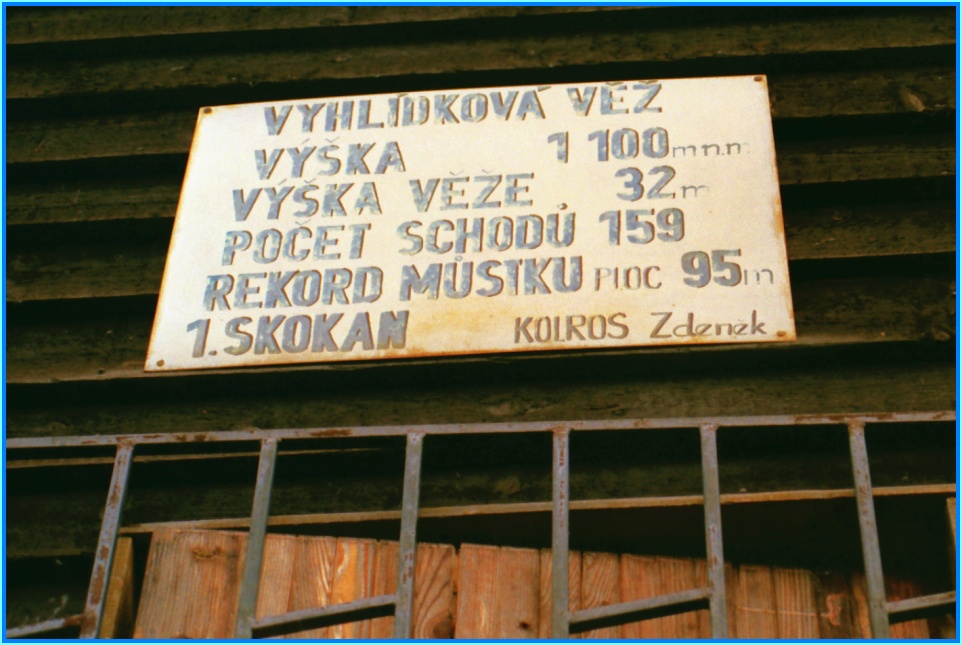 VYHLÍDKOVÁ VĚŽ
VÝŠKA 1 100 m n. m.
VÝŠKA VĚŽE 32 m
POČET SCHODŮ 159
REKORD MŮSTKU PLOC 95 m
1. SKOKAN KOLROS Zdeněk